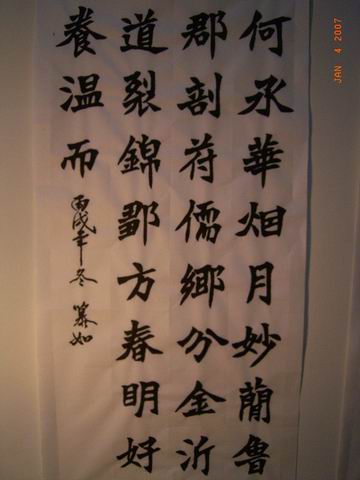 何承華烟月妙蕳魯
郡剖苻儒鄉分金沂
道裂錦鄒方春明好
養温而
丙戌年冬
JAN 4 2007